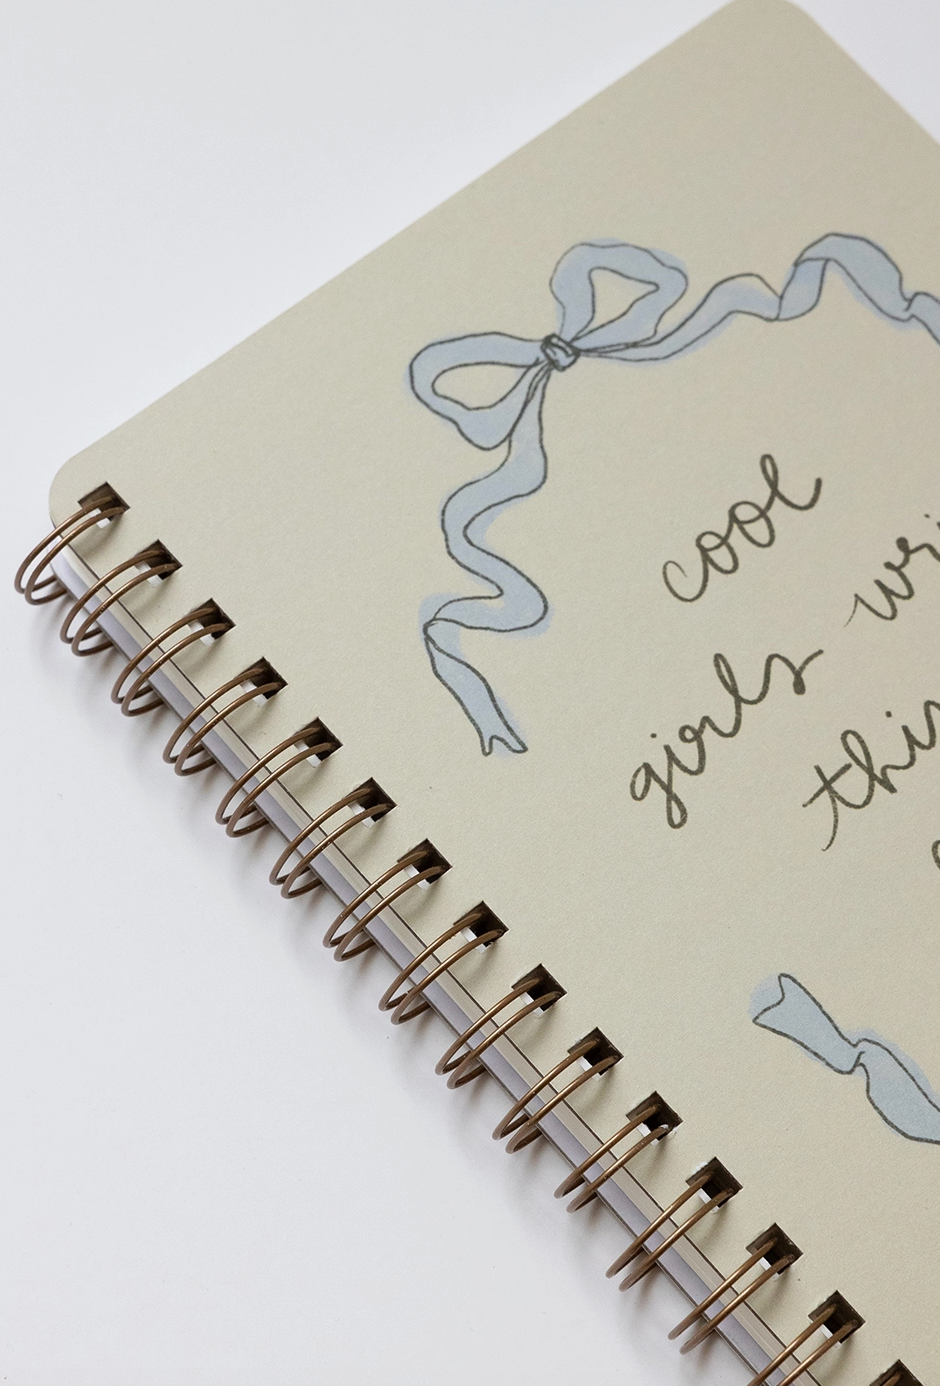 cool
girls wri
thin